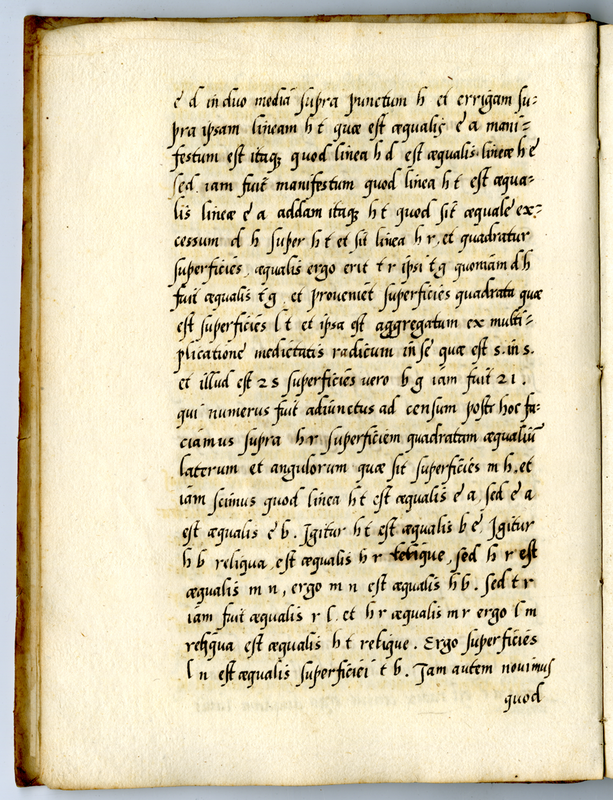 ē d in duo mediā supra punctum h et errigam su-
pra ipsam lineam h t quæ est æqualis ē a mani-
festum est itaqꝫ quod linea h d est æqualis lineæ h ē
sed iam fuit manifestum quod linea h t est æqua-
lis lineæ ē a addam itaqꝫ h t quod sit æquale ex-
cessum d h super h t et sit linea h r, et quadratur
superficies, æqualis ergo erit t r ipsi t g quoniam d h
fuit æqualis t g, et proveniet superficies quadrata quæ
est superficies l t et ipsa est aggregatum ex multi-
plicatione medietatis radicum in se quæ est 5. in 5.
et illud est 25 superficies vero b g iam fuit 21.
qui numerus fuit adiunctus ad censum post hoc fa-
ciamus supra h r superficiem quadratam æqualiū
laterum et angulorum quæ sit superficies m h, et
iam scimus quod linea h t est æqualis ē a, sed ē a
est æqualis ē b. Igitur h t est æqualis b ē, Igitur
h b reliqua est æqualis h r relique, sed h r est
æqualis m n, ergo m n est æqualis h b. sed t r
iam fuit æqualis r l, et h r æqualis m r ergo l m
reliqua est æqualis h t relique. Ergo superficies
l n est æqualis superficiei t b. Iam autem novimus
quod